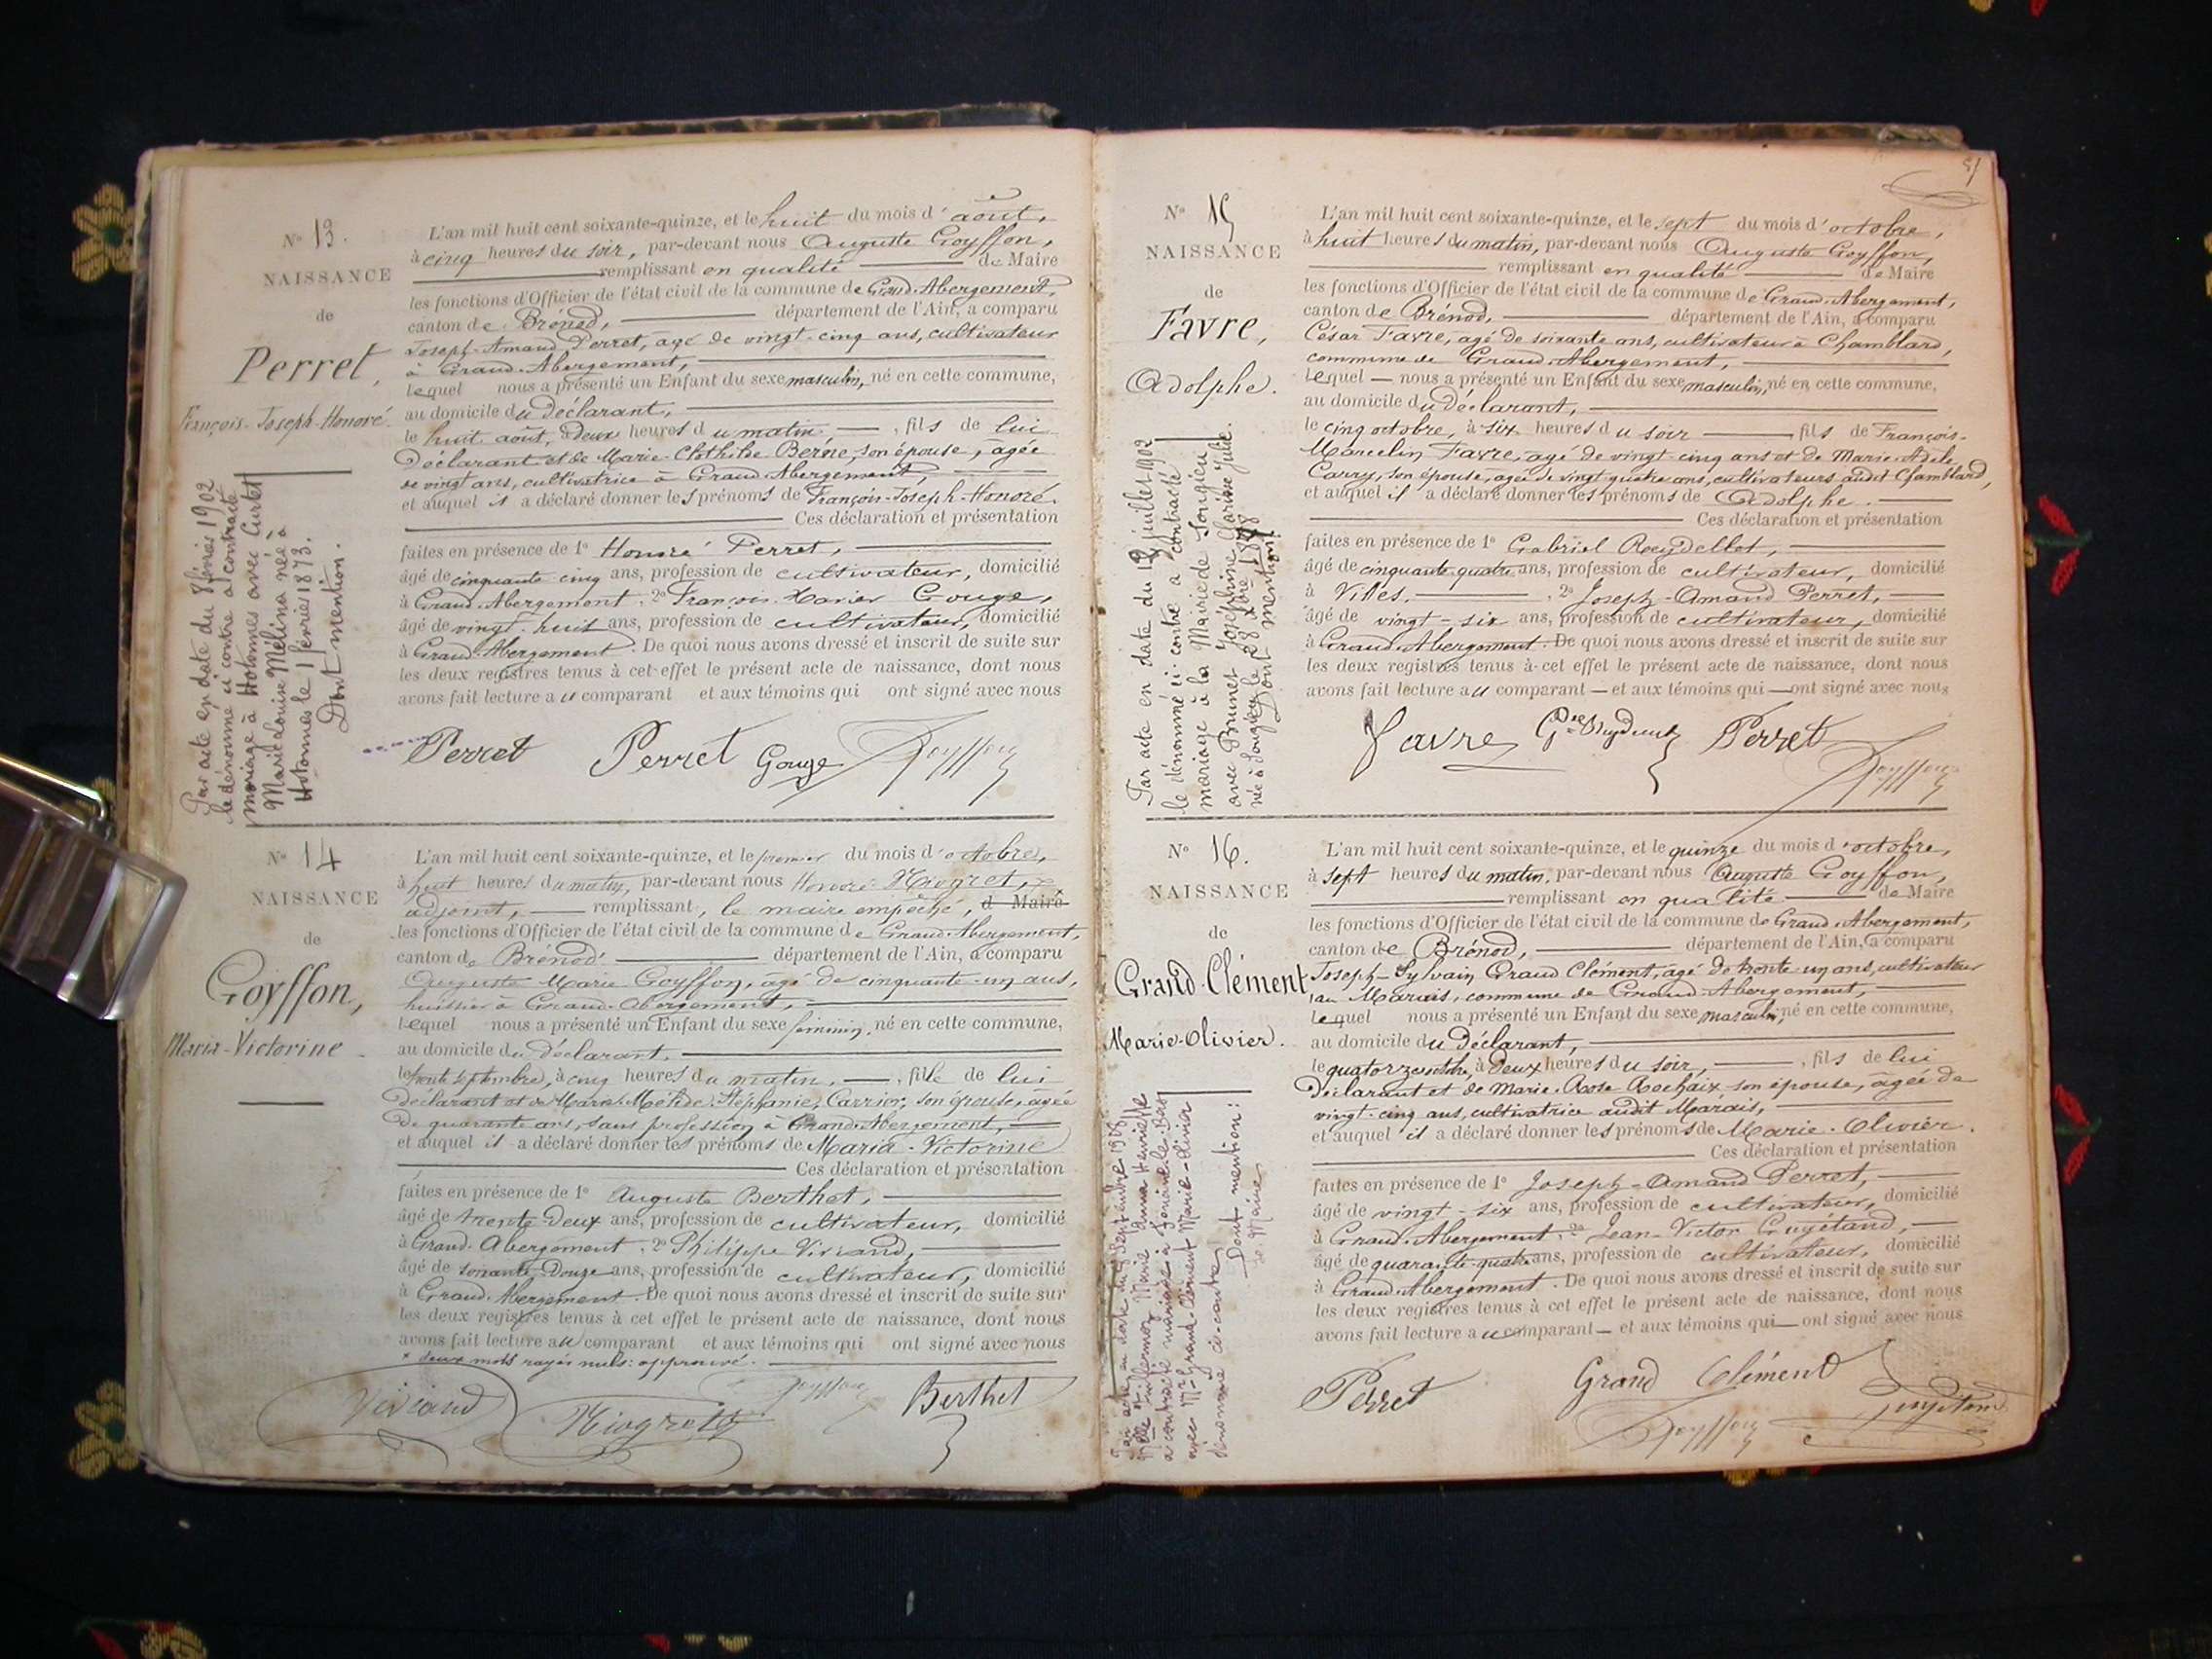 N° 13.
NAISSANCE
de
Perret,
François-Joseph-Honoré.
Par acte en date du 8 février 1902
le dénommé ci contre a contracté
mariage à Hotonnes avec Curtet
Marie Louise Mélina née à
Hotonnes le 1 février 1873.
Dont mention.
L'an mil huit cent soixante-quinze, et le huit du mois d'août,
à cinq heures du soir, par-devant nous Auguste Goyffon,
remplissant en qualité de Maire
les fonctions d'Officier de l'état civil de la commune de Grand-Abergement,
canton de Brénod, département de l'Ain, a comparu
Joseph-Amand Perret, âgé de vingt-cinq ans, cultivateur
à Grand-Abergement,
lequel nous a présenté un Enfant du sexe masculin, né en cette commune,
au domicile du déclarant,
le huit août, à deux heures du matin, fils de lui
Déclarant et de Marie-Clothilde Berne, son épouse, âgée
de vingt ans, cultivatrice à Grand-Abergement,
et auquel il a déclaré donner les prénoms de François-Joseph-Honoré.
Ces déclaration et présentation
faites en présence de 1° Honoré Perret,
âgé de cinquante-cinq ans, profession de cultivateur, domicilié
à Grand-Abergement, 2° François-Xavier Gouge,
âgé de vingt-huit ans, profession de cultivateur, domicilié
à Grand-Abergement. De quoi nous avons dressé et inscrit de suite sur
les deux registres tenus à cet effet le présent acte de naissance, dont nous
avons fait lecture au comparant et aux témoins qui ont signé avec nous
Perret Perret Gouge Goyffon
N° 14
NAISSANCE
de
Goyffon,
Maria-Victorine.
L'an mil huit cent soixante-quinze, et le premier du mois d'octobre,
à huit heures du matin, par-devant nous Honoré Miogret,
adjoint, remplissant, le maire empêché, d Maire
les fonctions d'Officier de l'état civil de la commune de Grand-Abergement,
canton de Brénod département de l'Ain, a comparu
Auguste Marie Goyffon, âgé de cinquante-un ans,
huissier à Grand-Abergement,
lequel nous a présenté un Enfant du sexe féminin, né en cette commune,
au domicile du déclarant,
le trente septembre, à cinq heures du matin, fille de lui
Déclarant et de Stéphanie Carrier, son épouse, âgée
de quarante ans, sans profession à Grand-Abergement,
et auquel il a déclaré donner les prénoms de Maria-Victorine
Ces déclaration et présentation
faites en présence de 1° Auguste Berthet,
âgé de trente-deux ans, profession de cultivateur, domicilié
à Grand-Abergement, 2° Philippe Viviand,
âgé de soixante-douze ans, profession de cultivateur, domicilié
à Grand-Abergement. De quoi nous avons dressé et inscrit de suite sur
les deux registres tenus à cet effet le présent acte de naissance, dont nous
avons fait lecture au comparant et aux témoins qui ont signé avec nous
x deux mots rayés nuls: approuvé.
Viviand Miogret Goyffon Berthet
N° 15
NAISSANCE
de
Favre,
Adolphe.
Par acte en date du juillet 1902
le dénommé ci-contre a contracté
mariage à la Mairie de Songieu
avec Brunet Joséphine Clarisse Julie.
née à Songieu le 28 1878
Dont mention.
L'an mil huit cent soixante-quinze, et le sept du mois d'octobre,
à huit heures du matin, par-devant nous Auguste Goyffon,
remplissant en qualité de Maire
les fonctions d'Officier de l'état civil de la commune de Grand-Abergement,
canton de Brénod, département de l'Ain, a comparu
César Favre, âgé de soixante ans, cultivateur à Chamblard,
commune de Grand-Abergement,
lequel nous a présenté un Enfant du sexe masculin, né en cette commune,
au domicile du déclarant,
le cinq octobre, à six heures du soir fils de François-
Marcelin Favre, âgé de vingt-cinq ans et de Marie-Adèle
Carry, son épouse, âgée de vingt-quatre ans, cultivateurs audit Chamblard,
et auquel il a déclaré donner les prénoms de Adolphe.
Ces déclaration et présentation
faites en présence de 1° Gabriel Reydellet,
âgé de cinquante-quatre ans, profession de cultivateur, domicilié
à , 2° Joseph-Amand Perret,
âgé de vingt-six ans, profession de cultivateur, domicilié
à Grand-Abergement. De quoi nous avons dressé et inscrit de suite sur
les deux registres tenus à cet effet le présent acte de naissance, dont nous
avons fait lecture au comparant et aux témoins qui ont signé avec nous
Favre Perret
Goyffon
N° 16.
NAISSANCE
de
Grand-Clément
Marie-Olivier.
Par acte en date du septembre
Melle Marie Anna Henriette
a contracté mariage à
avec Mr Grand-Clément Marie-Olivier
dénommé ci-contre
Dont mention:
Le Maire
L'an mil huit cent soixante-quinze, et le quinze du mois d'octobre,
à sept heures du matin, par-devant nous Auguste Goyffon,
remplissant en qualité de Maire
les fonctions d'Officier de l'état civil de la commune de Grand-Abergement,
canton de Brénod, département de l'Ain, a comparu
Joseph-Sylvain Grand Clément, âgé de trente-un ans, cultivateur
au Marais, commune de Grand-Abergement,
lequel nous a présenté un Enfant du sexe masculin, né en cette commune,
au domicile du Déclarant,
le quatorze octobre, à deux heures du soir, fils de lui
Déclarant et de Marie-Rose Rochaix son épouse, âgée de
vingt-cinq ans, cultivatrice audit Marais,
et auquel il a déclaré donner les prénoms de Marie-Olivier.
Ces déclaration et présentation
faites en présence de 1° Joseph-Amand Perret,
âgé de vingt-six ans, profession de cultivateur, domicilié
à Grand-Abergement, 2° Jean-Victor Guyétand,
âgé de quarante-quatre ans, profession de cultivateur, domicilié
à Grand-Abergement. De quoi nous avons dressé et inscrit de suite sur
les deux registres tenus à cet effet le présent acte de naissance, dont nous
avons fait lecture au comparant et aux témoins qui ont signé avec nous
Perret Grand Clément Guyétand
Goyffon